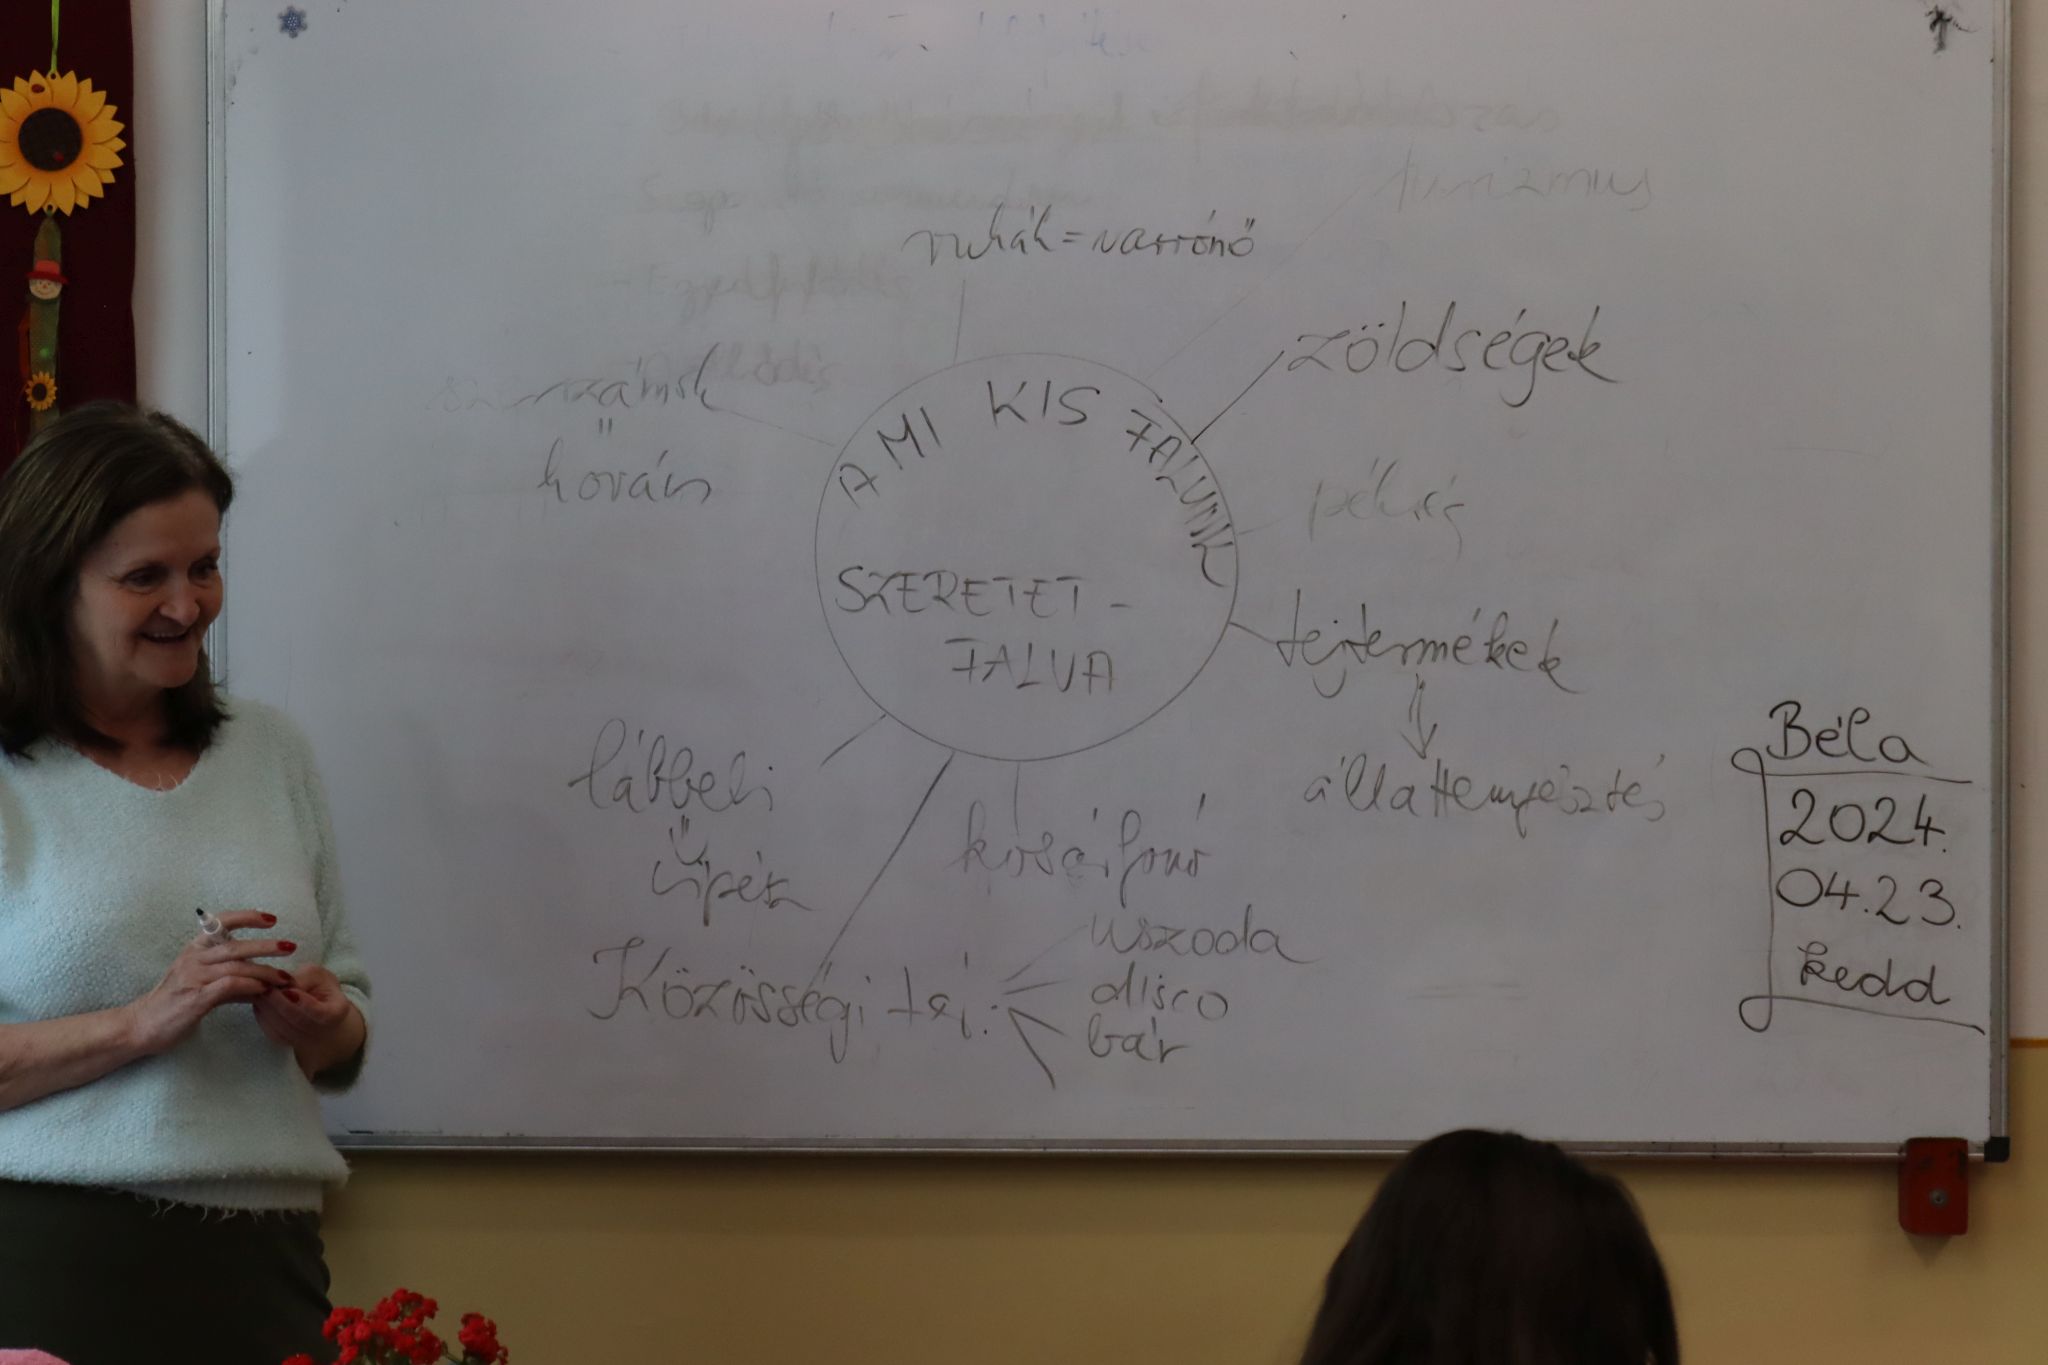 turizmus
ruhák = varrónő
zöldségek
szerszámok
"
kovács
A MI KIS FALUNK
pékség
SZERETET-
FALVA
tejtermékek
állattenyésztés
lábbeli
cipész
kosárfonó
Közösségi tér:
uszoda
disco
bár
Béla
2024.
04.23.
kedd